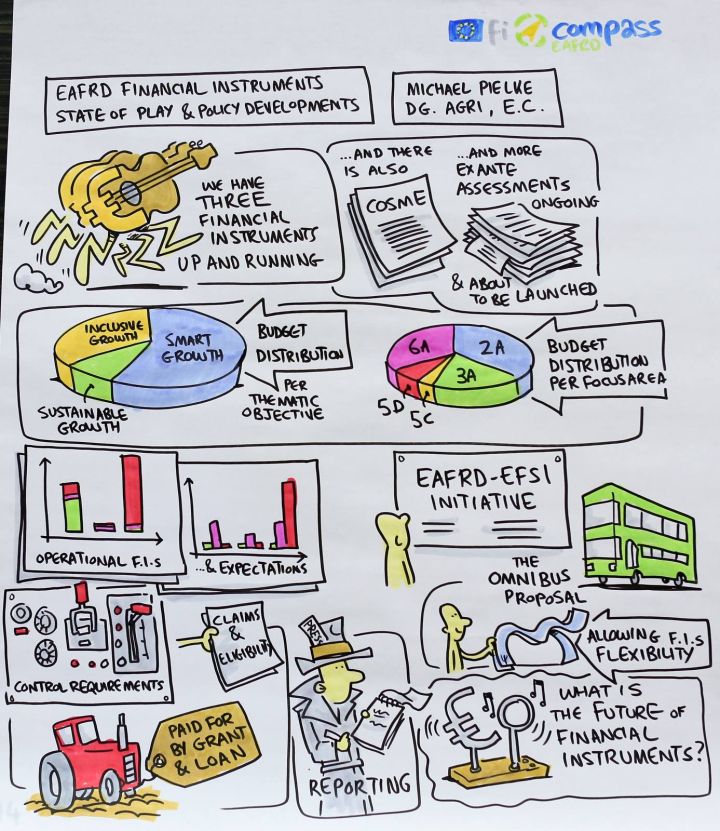 fi compass
EAFRD
EAFRD FINANCIAL INSTRUMENTS
STATE OF PLAY & POLICY DEVELOPMENTS
MICHAEL PIELKE
DG. AGRI, E.C.
WE HAVE
THREE
FINANCIAL
INSTRUMENTS
UP AND RUNNING
...AND THERE
IS ALSO
COSME
...AND MORE
EXANTE
ASSESSMENTS
ONGOING
& ABOUT
TO BE LAUNCHED
INCLUSIVE
GROWTH
SMART
GROWTH
SUSTAINABLE
GROWTH
BUDGET
DISTRIBUTION
PER
THEMATIC
OBJECTIVE
6A
2A
3A
5D
5C
BUDGET
DISTRIBUTION
PER FOCUS AREA
OPERATIONAL F.I.S
...& EXPECTATIONS
EAFRD-EFSI
INITIATIVE
THE
OMNIBUS
PROPOSAL
ALLOWING F.I.s
FLEXIBILITY
CONTROL REQUIREMENTS
CLAIMS
&
ELIGIBILITY
PAID FOR
BY GRANT
& LOAN
PRESS
REPORTING
€
WHAT IS
THE FUTURE OF
FINANCIAL
INSTRUMENTS?